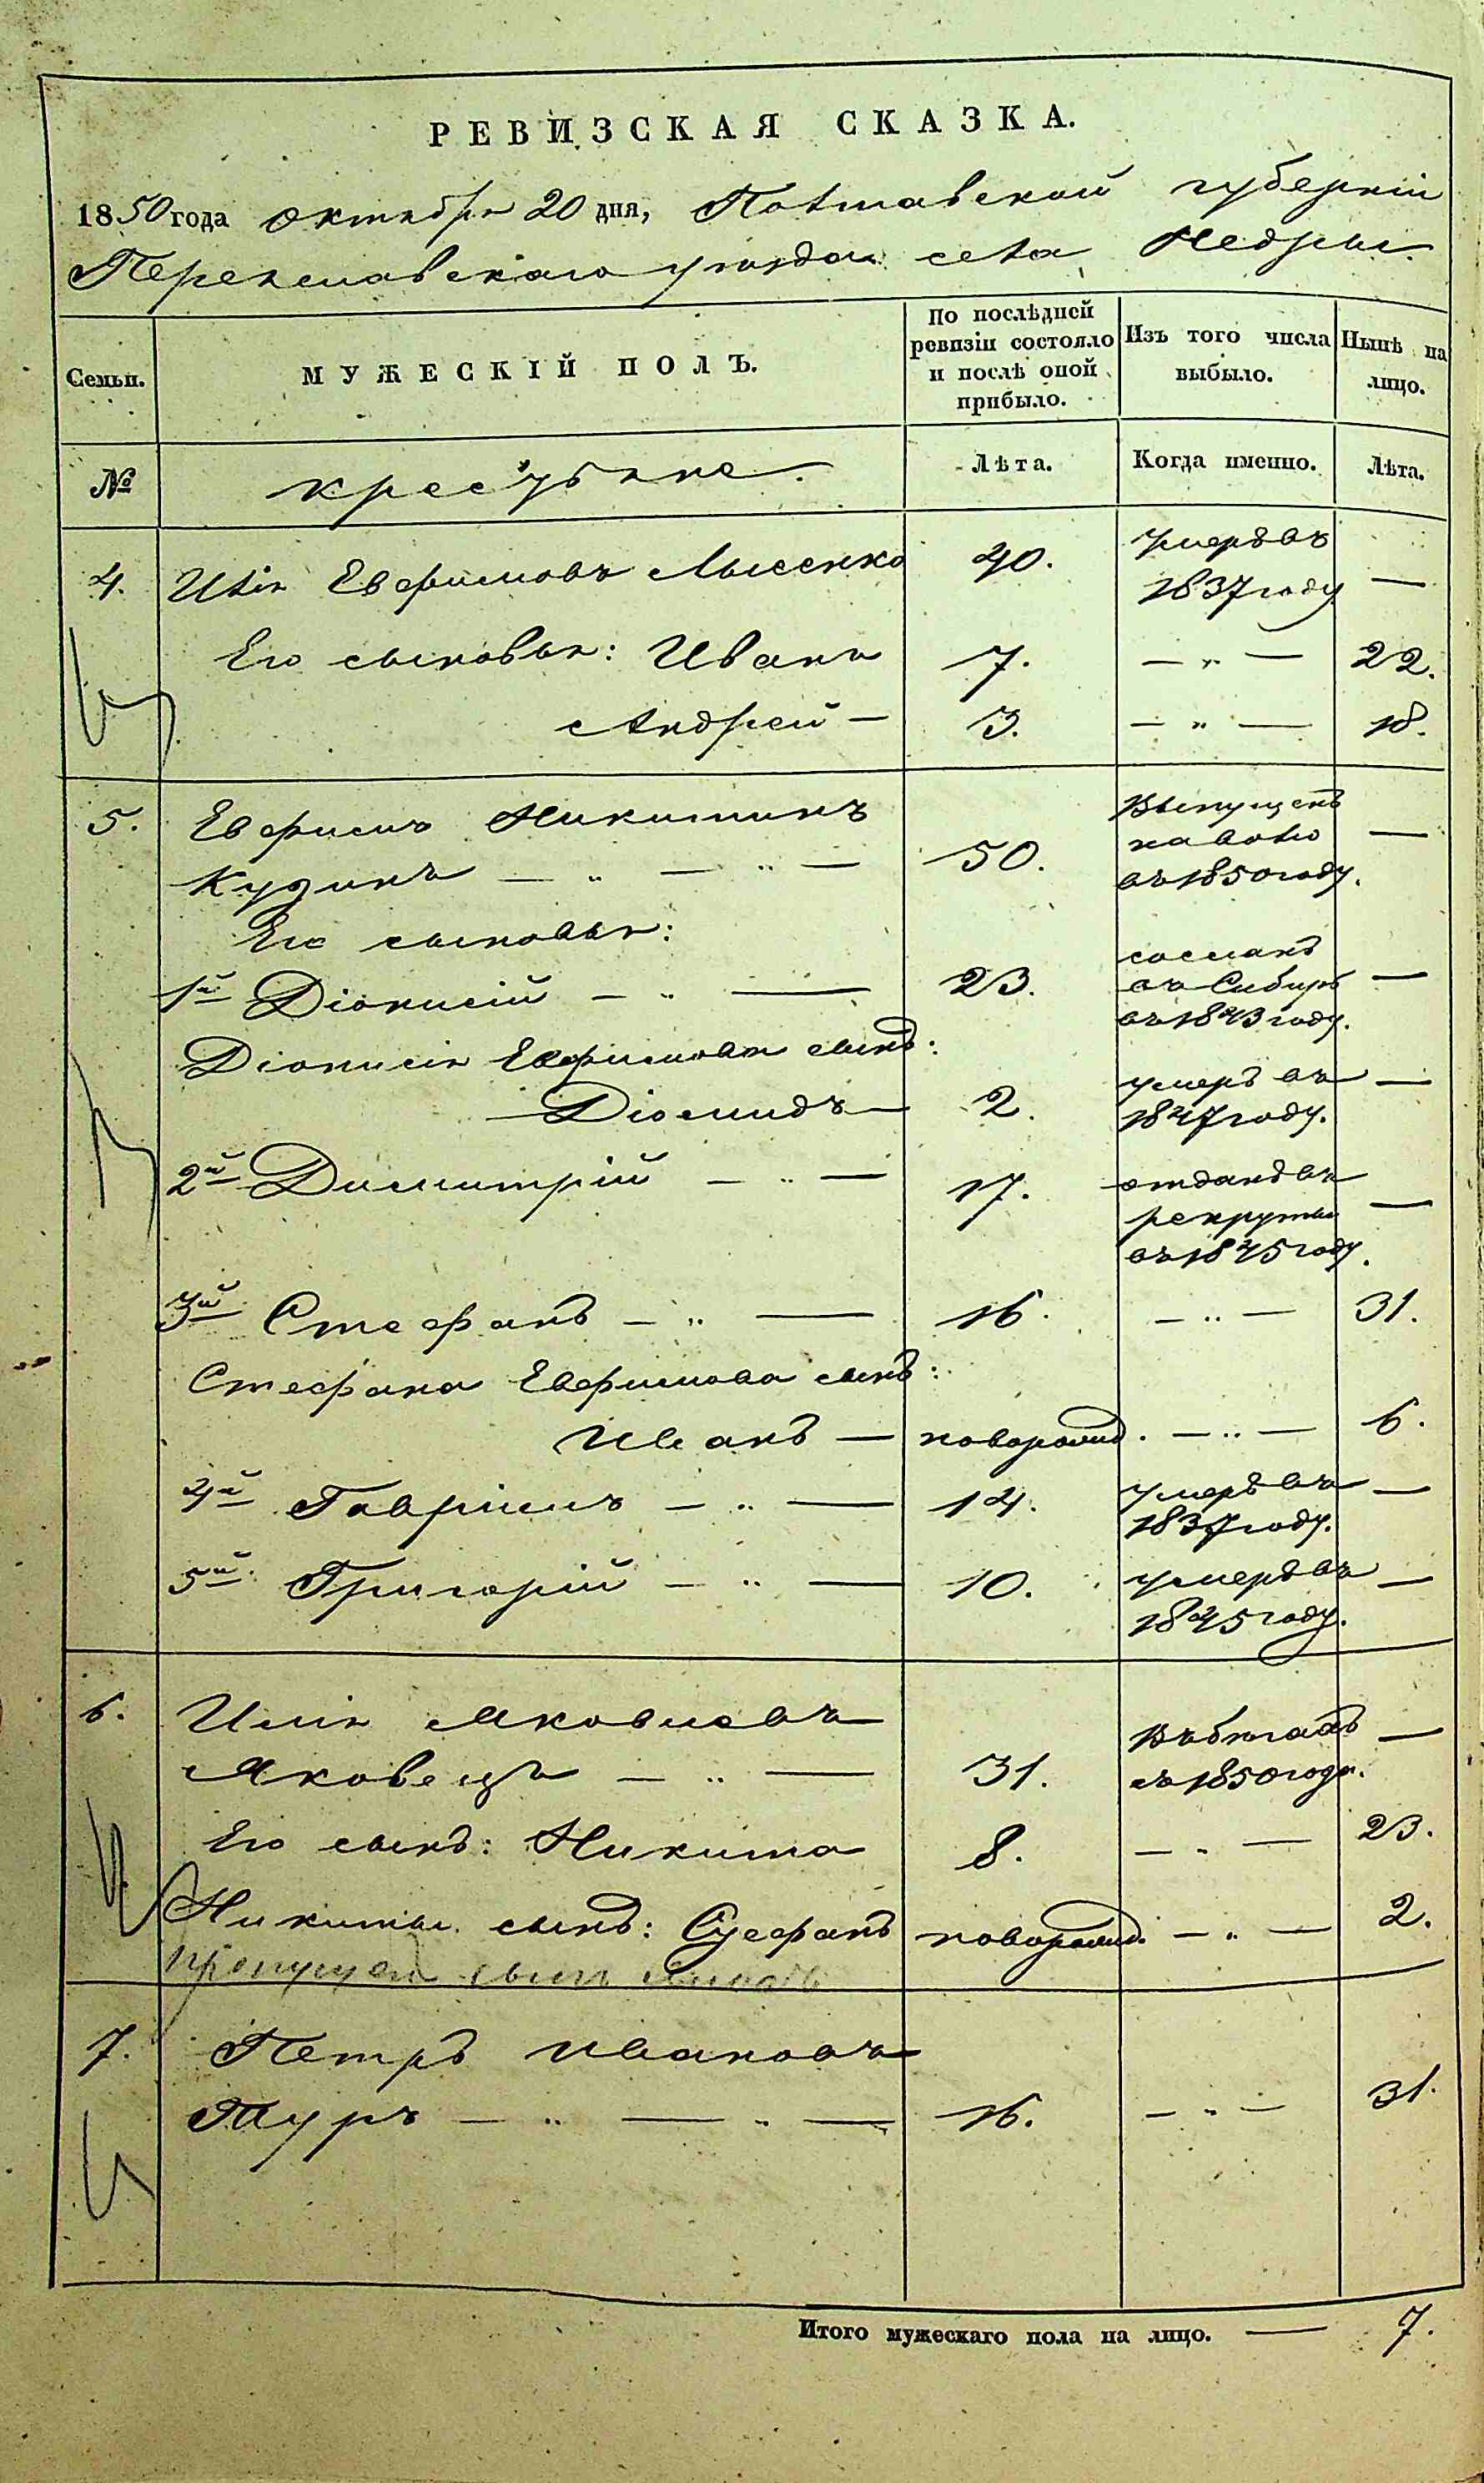 РЕВИЗСКАЯ СКАЗКА.
1850 года октября 20 дня, Полтавской губерніи
Переяславскаго уезда села Недры.
Семьи.
МУЖЕСКІЙ ПОЛЪ.
По послѣдней ревизіи состояло и послѣ оной прибыло.
Изъ того числа выбыло.
Нынѣ на лицо.
№
крестьяне.
Лѣта.
Когда именно.
Лѣта.
4. Илія Евфимовъ Лысенко 40. умеръ въ 1837 году —
Его сыновья: Иванъ 7. — „ — 22.
Андрей — 3. — „ — 18.
5. Евфимъ Никитинъ
Кузинъ — „ — „ — 50. Выпущенъ на волю въ 1850 году. —
Его сыновья:
1й Діонисій — „ — 23. сосланъ въ Сибирь въ 1843 году. —
Діонисія Евфимова сынъ:
Діомидъ — 2. умеръ въ 1847 году. —
2й Димитрій — „ — 17. отданъ въ рекруты въ 1845 году. —
3й Стефанъ — „ — 16. — „ — 31.
Стефана Евфимова сынъ:
Иванъ — новорожд. — „ — 6.
4й Гавріилъ — „ — 14. умеръ въ 1837 году. —
5й Григорій — „ — 10. умеръ въ 1845 году. —
6. Илія Яковлевъ
Яковецъ — „ — 31. Въ бѣгахъ съ 1850 года. —
Его сынъ: Никита 8. — „ — 23.
Никиты сынъ: Стефанъ новорожд. — „ — 2.
пропущен сын
7. Петръ Ивановъ
Туръ — „ — „ — 16. — „ — 31.
Итого мужескаго пола на лицо. — 7.